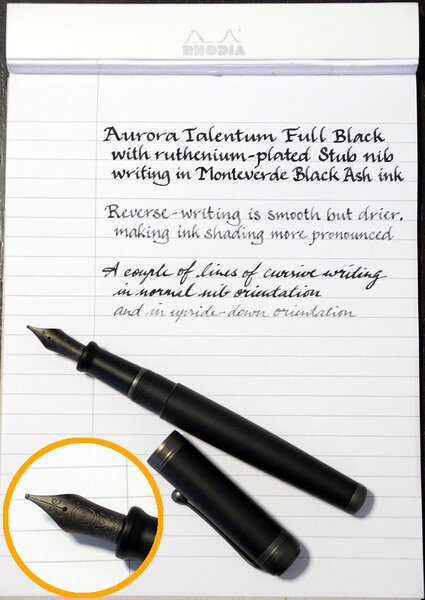 RHODIA
Aurora Talentum Full Black
with ruthenium-plated Stub nib
writing in Monteverde Black Ash ink
Reverse-writing is smooth but drier,
making ink shading more pronounced
A couple of lines of cursive writing
in normal nib orientation
and in upside-down orientation